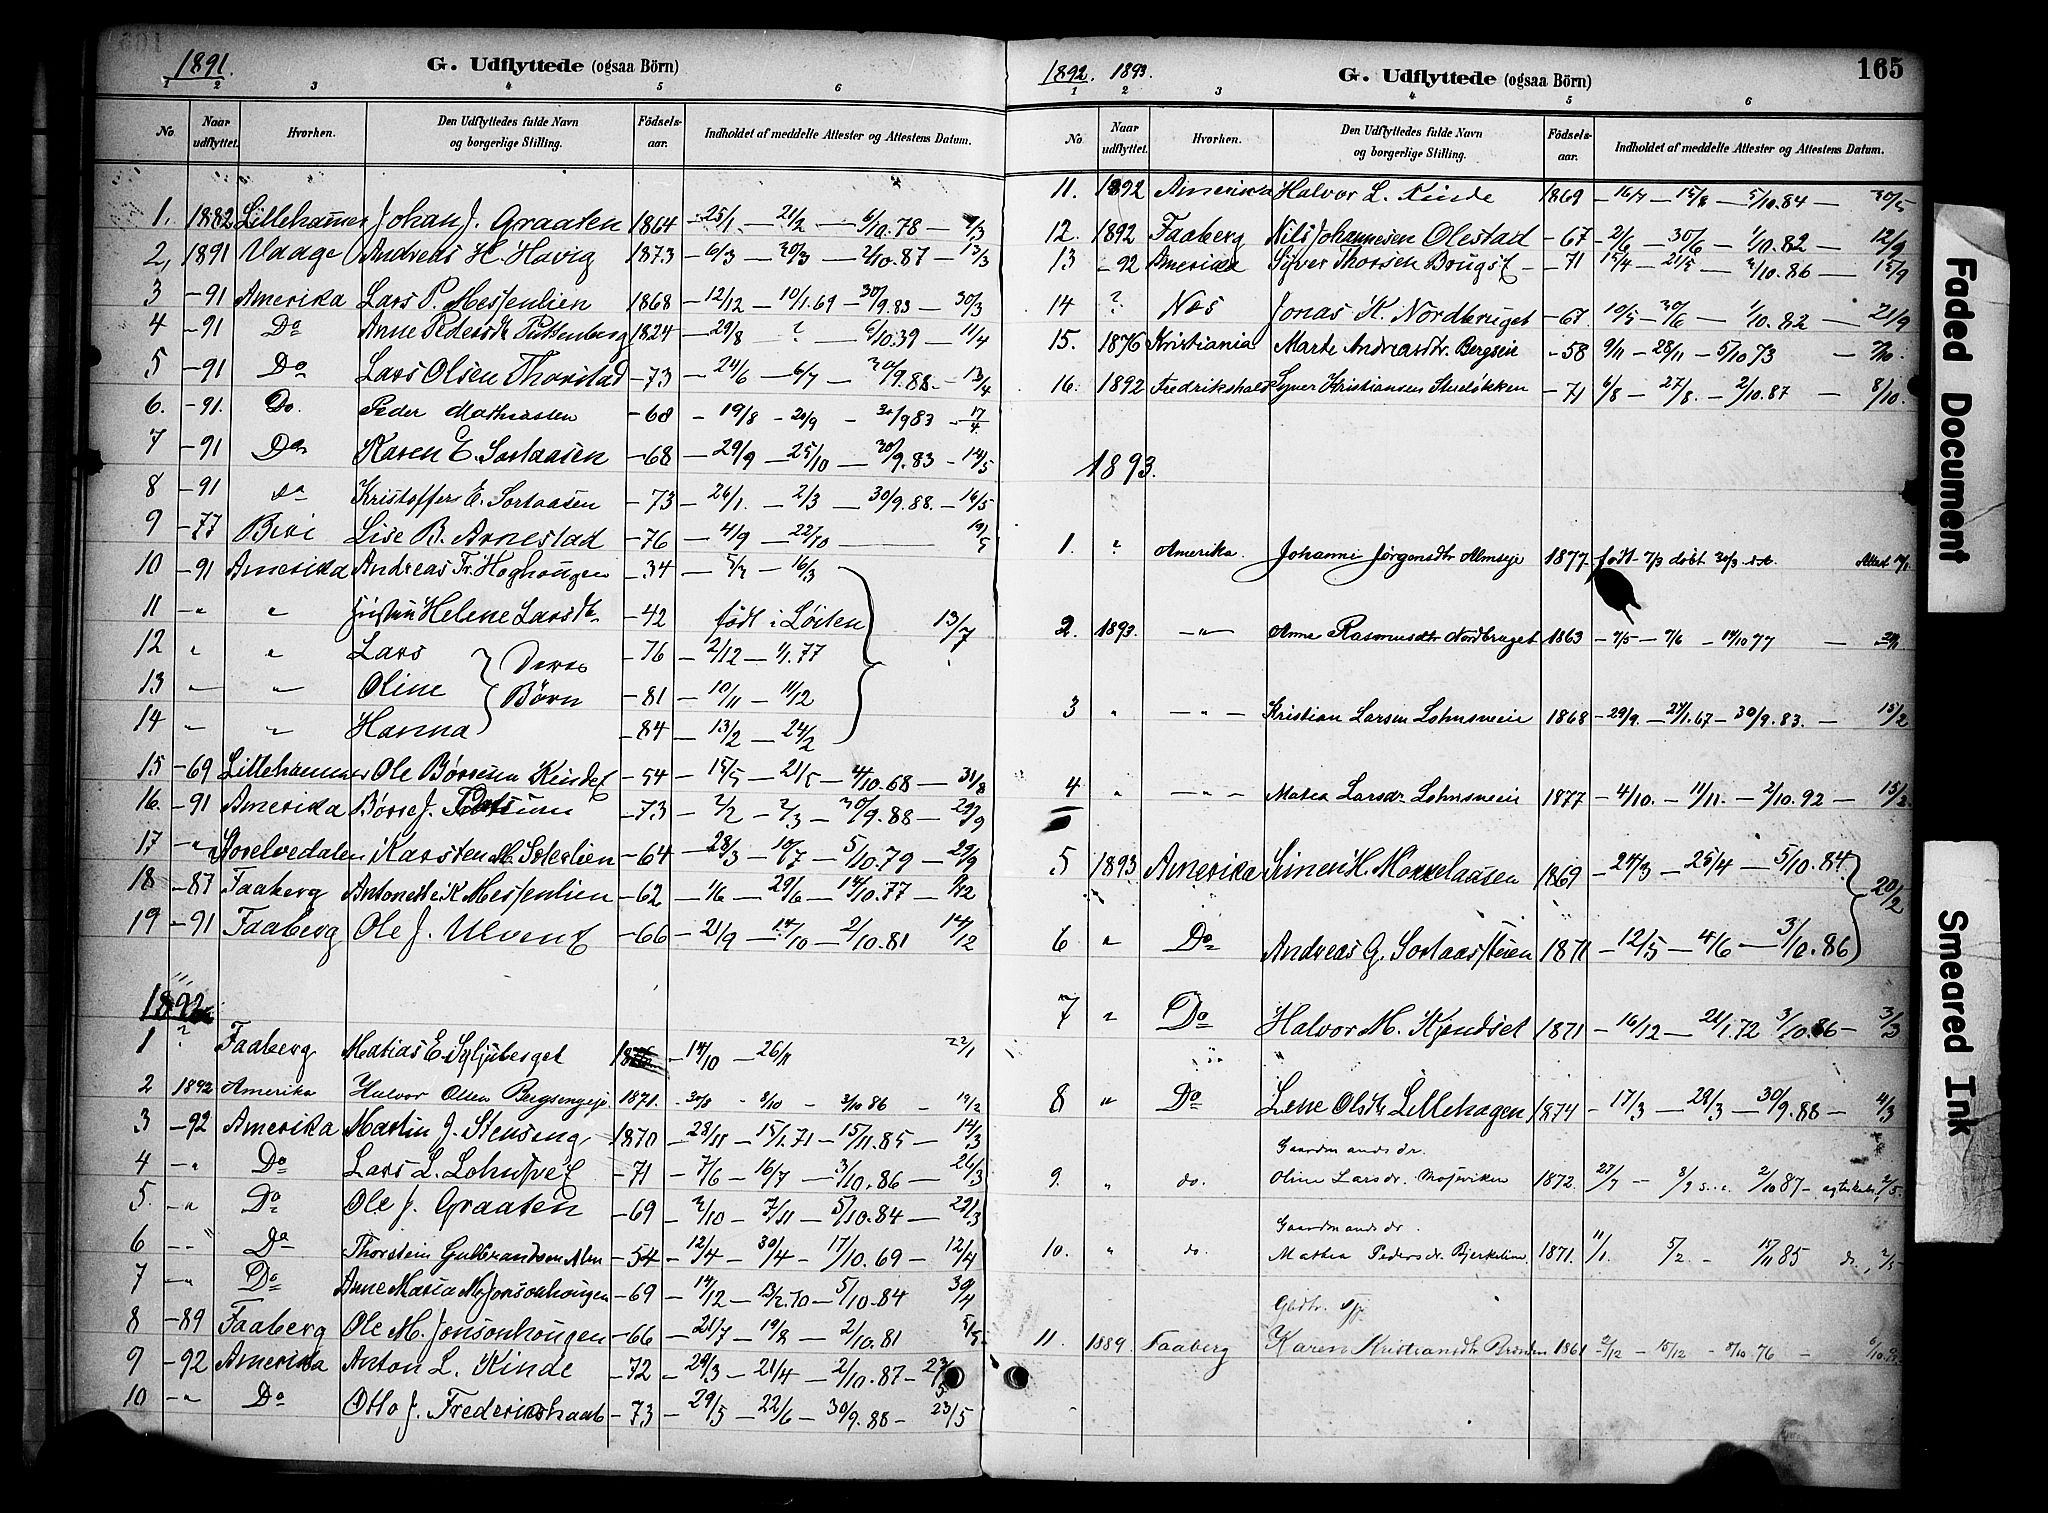 1891.
G. Udflyttede (ogsaa Börn)
1 2 3 4 5 6
No. Naar udflyttet. Hvorhen. Den Udflyttedes fulde Navn og borgerlige Stilling. Födsels-aar. Indholdet af meddelte Attester og Attestens Datum.
1. 1882 Lillehammer Johan J. Graaten 1864 — 25/1 — 21/2 — 6/10.78 — 2/3
2, 1891 Vaage Andreas H. Havig 1873 — 6/3 — 30/3 — 2/10.87 — 13/3
3 -91 Amerika Lars P. Messenlien 1868 — 12/12 — 10/1.69 — 30/9.83 — 30/3
4 -91 Do Anne Pedersdr Puttenberg 1824 — 29/8 ? 6/10.39 — 11/4
5 -91 Do Lars Olsen Thorstad -73 — 24/6 — 6/7 — 30/9.88 — 13/4
6. -91. Do. Peder Mathiassen -68 — 19/8 — 20/9 — 30/9 83 — 17/4
7 -91 Do Karen E. Sortaasen -68 — 29/9 — 25/10 — 30/9.83 — 14/5
8 -91 do Kristoffer E. Sortaasen -73 — 26/1. — 2/3 30/9.88. — 16/5
9 -77 Biri Lise B. Arnestad -76 — 4/9 — 22/10 — 19/5
10 -91 Amerika Andreas Fr. Haghougen -34 — 5/2 — 16/3
11 " " Helene Larsdr -42 født i Løiten 13/7
12 " " Lars Deres -76 — 2/12 — 1/1.77
13 " " Oline Børn -81 — 10/11 — 11/12
14 " " Hanna -84 — 13/2 — 24/2
15 -69 Lillehammer Ole Børresen Kinde -54 — 15/5 — 21/5 — 4/10.68 — 31/8
16. -91 Amerika Børre J. -73 — 2/2 — 2/3 — 30/9.88 — 29/9
17 " Karsten M. -64 — 28/3 — 10/7 — 5/10.79 — 29/9
18 -87 Faaberg Antonette K. Messenlien -62 — 1/6 — 29/6 — 14/10.77 —
19 -91 Faaberg Ole J. Ulven -66 — 21/9 — 14/10 — 2/10.81 14/12
1892
1 ? Faaberg Matias E. Syljuberget — 14/10 — 26/11 22/1
2 1892 Amerika Halvor Olsen 1871. — 30/8 — 8/10 — 3/10 86 — 19/2
3 -92 Amerika Martin J. Stenseng 1870 — 28/11 — 15/1.71 — 15/11.85 — 14/3
4 " Do Lars L. -71 — 7/6 — 16/7 — 3/10.86 — 26/3
5. " Do Ole J. Graaten -69 — 2/10 — 7/11 — 5/10.84 — 28/3
6 " Do Thorstein Gulbrandsen Alm -54 — 12/4 — 30/4 — 17/10.69 — 12/4
7 " Do Anne Maria M. Jonsonhougen -69 — 14/12 — 13/2.70 — 5/10.84 30/4
8 -89 Faaberg Ole M. Jonsonhougen -66 — 21/7 — 19/8 — 2/10.81 5/5
9 -92 Amerika Anton L. Kinde -72 — 29/3 — 21/4 — 2/10.87 — 23/5
10 " Do Otto J. Frederikshaab -73 — 29/5 — 22/6 — 30/9.88 — 23/5
1892. 1893.
G. Udflyttede (ogsaa Börn)
165
1 2 3 4 5 6
No Naar udflyttet. Hvorhen. Den Udflyttedes fulde Navn og borgerlige Stilling. Födsels-aar. Indholdet af meddelte Attester og Attestens Datum.
11. 1892 Amerika Halvor L. Kinde 1869 — 16/7 — 15/8 — 5/10.84 — 30/5
12. 1892 Faaberg Nils Johannesen Olestad -67 — 2/6 — 30/6 — 1/10.82 — 12/9
13 -92 Amerika Syver Thorsen -71 15/4 — 21/5 — 2/10.86 — 15/9
14 ? Næs Jonas K. Nordbruget -67. 10/5 — 30/6 — 1/10.82 — 21/9
15. 1876 Kristiania Marte Andreasdtr. Bergsen -58 9/11 — 28/11 — 5/10 73 —
16. 1892 Fredrikshald Syver Kristiansen Studløkken -71 6/8 — 27/8. — 2/10.87 — 8/10.
1893.
1. ? Amerika. Johanne Jørgensdtr 1877 født 7/3 døbt 30/3
2. 1893. — " — Anne Rasmusdtr Nordbruget 1863 — 7/5 — 7/6 — 14/10 77 —
3 " — " — Kristian Larsen Lohnsveen 1868 — 29/9. — 27/1.67 — 30/9.83. — 15/2
4 " — " — Matea Larsdr. Lohnsveen 1877 — 4/10. — 11/11. — 2/10.92 — 15/2
5 1893 Amerika Simen H. 1869 — 24/3 — 25/4 — 5/10.84. 20/2
6 " Do Andreas G. Sortaasstuen 1871 — 12/5 — 4/6 — 3/10.86
7 " Do Halvor M. Kjendset 1871 — 16/12 — 21/1.72 3/10.86 — 3/3
8 " Do Lene Olsdtr Lillehagen 1874 — 17/3 — 29/3 — 30/9.88 — 4/3
Gaardmandsdr.
9. " do. Oline Larsdr. 1872. 27/7 — 8/9 2/10 87 — 2/5.
Gaardmandsdr.
10. " do. Mathea Pedersdr. Bjerkelien 1871. 11/1. 5/2. — 15/11 85 do. 2/5
Gbdtr.
11. 1889. Faaberg Karen Kristiansdtr 1861 2/12 — 15/12 — 8/10.76 —
Faded Document
Smeared Ink